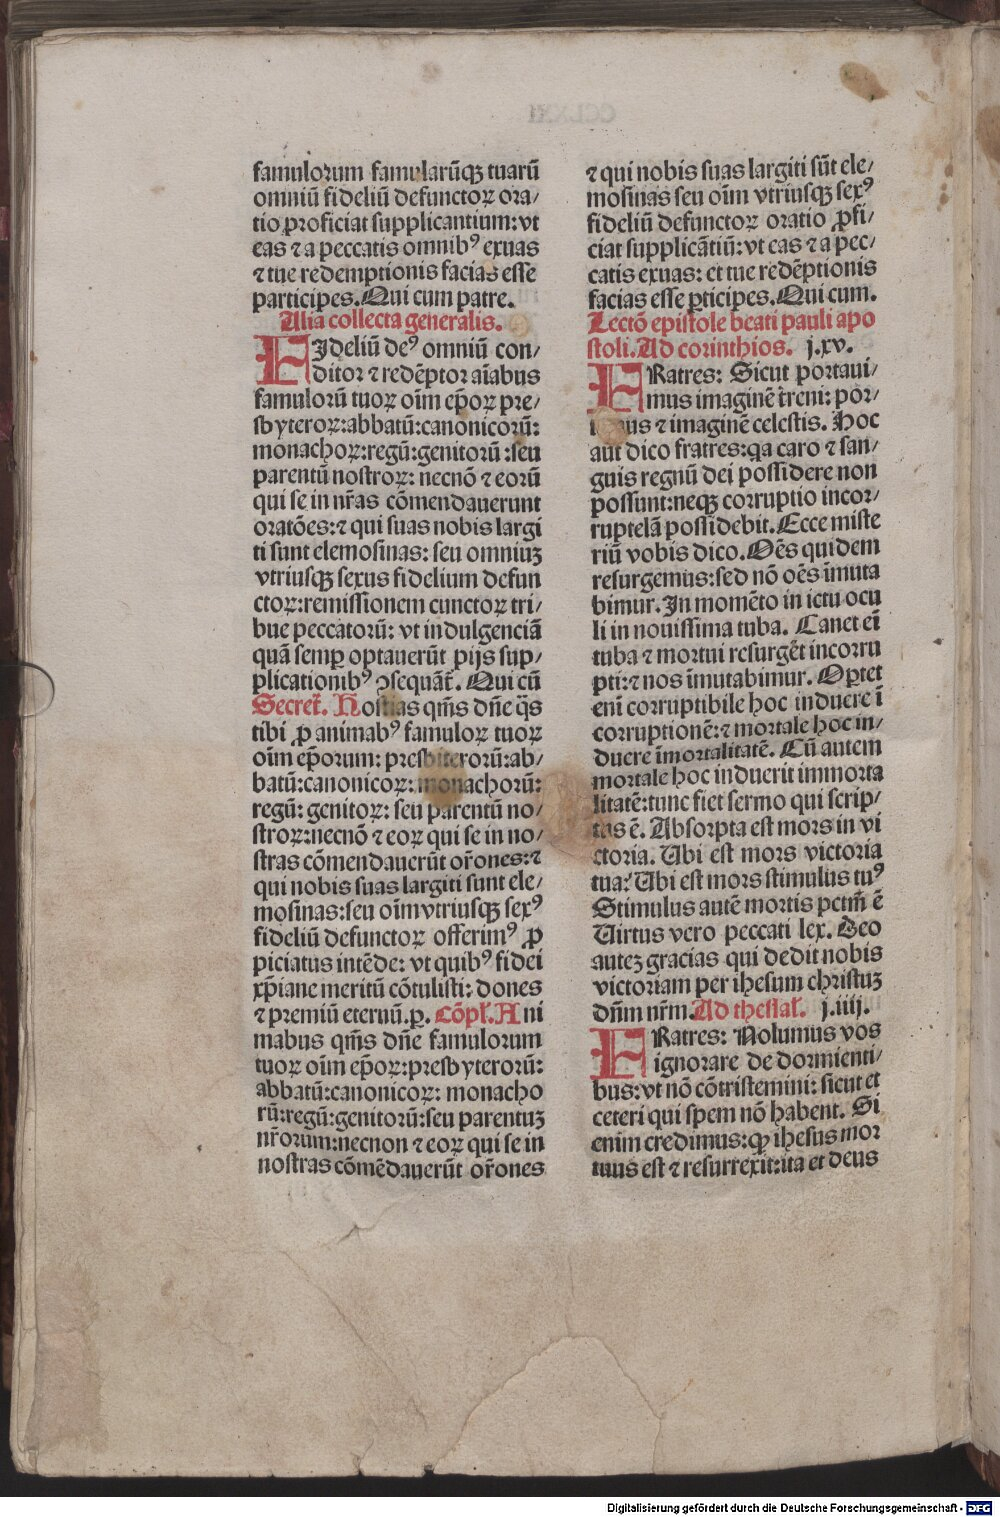 famulorum famularūqꝫ tuarū
omniū fideliū defunctoꝝ ora/
tio proficiat supplicantium: vt
eas ⁊ a peccatis omnibꝰ exuas
⁊ tue redemptionis facias esse
participes. Qui cum patre.
Alia collecta generalis.
FIdeliū deꝰ omniū con/
ditor ⁊ redēptor aīabus
famulorū tuoꝝ oīm ep̄oꝝ pre/
sbyteroꝝ: abbatū: canonicorū:
monachoꝝ: regū: genitorū: seu
parentū nostroꝝ: necnō ⁊ eorū
qui se in nr̄as cōmendauerunt
oratōes: ⁊ qui suas nobis largi
ti sunt elemosinas: seu omniuꝫ
vtriusqꝫ sexus fidelium defun
ctoꝝ: remissionem cunctoꝝ tri/
bue peccatorū: vt indulgenciā
quā semꝑ optauerūt pijs sup/
plicationibꝰ ꝯsequāt̄. Qui cū
Secret̄. Hostias qm̄s dn̄e q̄s
tibi ꝓ animabꝰ famuloꝝ tuoꝝ
oīm ep̄orum: presbiterorū: ab/
batū: canonicoꝝ: monachorū:
regū: genitoꝝ: seu parentū no/
stroꝝ: necnō ⁊ eoꝝ qui se in no/
stras cōmendauerūt or̄ones: ⁊
qui nobis suas largiti sunt ele/
mosinas: seu oīm vtriusqꝫ sexꝰ
fideliū defunctoꝝ offerimꝰ ꝓ
piciatus intēde: vt quibꝰ fidei
xp̄iane meritū cōtulisti: dones
⁊ premiū eternū. p. Cōpl̄. Ani
mabus qm̄s dn̄e famulorum
tuoꝝ oīm ep̄oꝝ: presbyterorū:
abbatū: canonicoꝝ: monacho
rū: regū: genitorū: seu parentuꝫ
nr̄orum: necnon ⁊ eoꝝ qui se in
nostras cōmēdauerūt or̄ones
⁊ qui nobis suas largiti sūt ele/
mosinas seu oīm vtriusqꝫ sexꝰ
fideliū defunctoꝝ oratio ꝓfi/
ciat supplicātiū: vt eas ⁊ a pec/
catis exuas: et tue redēptionis
facias esse ꝑticipes. Qui cum.
Lectō epistole beati pauli apo
stoli. Ad corinthios. j. xv.
FRatres: Sicut portaui/
mus imaginē t̄reni: por/
⁊ imaginē celestis. Hoc
aut dico fratres: qa caro ⁊ san/
guis regnū dei possidere non
possunt: neqꝫ corruptio incor/
ruptelā possidebit. Ecce miste
riū vobis dico. Oēs quidem
resurgemus: sed nō oēs īmuta
bimur. In momēto in ictu ocu
li in nouissima tuba. Canet eī
tuba ⁊ mortui resurgēt incorru
pti: ⁊ nos īmutabimur. Oꝑtet
enī corruptibile hoc induere ī
corruptionē: ⁊ mortale hoc in/
duere īmortalitatē. Cū autem
mortale hoc induerit immorta
litatē: tunc fiet sermo qui scrip/
tus ē. Absorpta est mors in vi
ctoria. Ubi est mors victoria
tua? Ubi est mors stimulus tuꝰ
Stimulus autē mortis pctm̄ ē
Uirtus vero peccati lex. Deo
auteꝫ gracias qui dedit nobis
victoriam per ihesum christuꝫ
dn̄m nr̄m. Ad thessal̄. j. iiij.
FRatres: Nolumus vos
ignorare de dormienti/
bus: vt nō cōtristemini: sicut et
ceteri qui spem nō habent. Si
enim credimus: ꝙ ihesus mor
tuus est ⁊ resurrexit: ita et deus
Digitalisierung gefördert durch die Deutsche Forschungsgemeinschaft - DFG